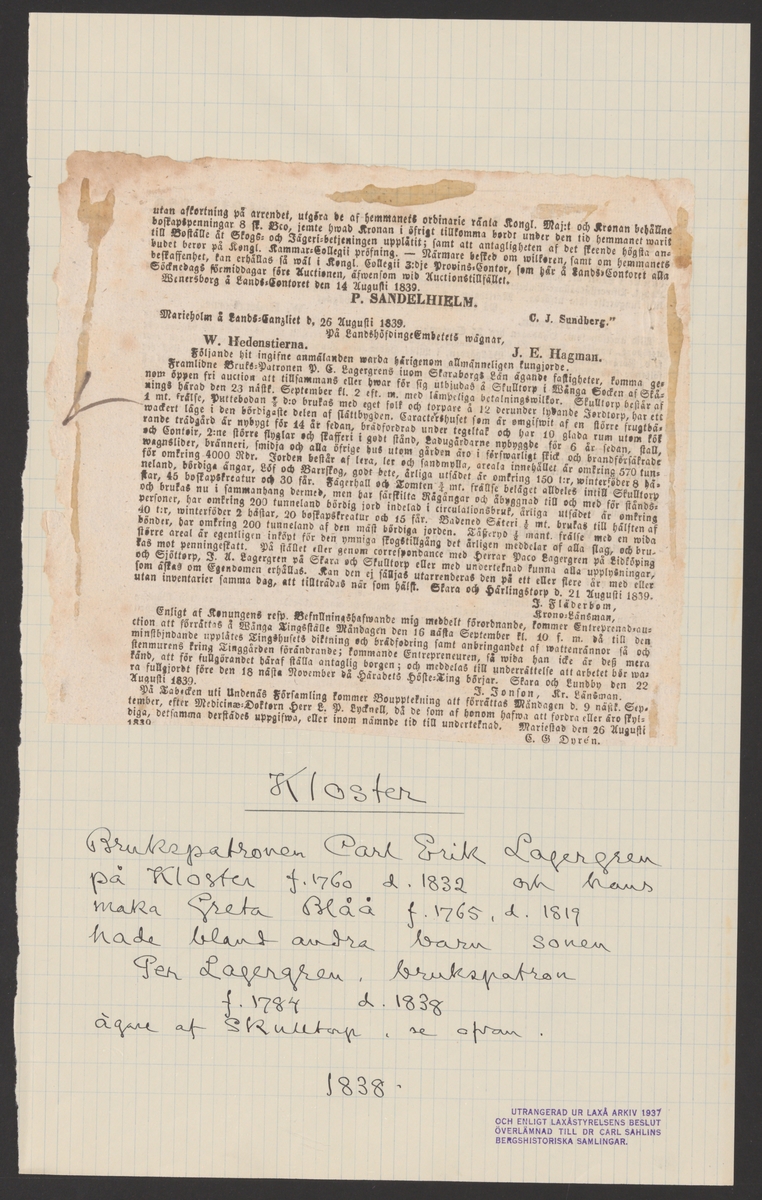 utan afkortning på arrendet, utgöra de af hemmanets ordinarie ränta Kongl. Maj:t och Kronan behållne
boskapspenningar 8 sk. Bco, jemte hwad Kronan i öfrigt tillkomma bordt under den tid hemmanet warit
till Boställe åt Skogs- och Jägeri-betjeningen upplåtit; samt att antagligheten af det skeende högsta an-
budet beror på Kongl. Kammar-Collegii pröfning. — Närmare besked om wilkoren, samt om hemmanets
beskaffenhet, kan erhållas så wäl i Kongl. Collegii 3:dje Provins-Contor, som här å Lands-Contoret alla
Söknedags förmiddagar före Auctionen, äfwensom wid Auctionstillfället.
Wenersborg å Lands-Contoret den 14 Augusti 1839.
P. SANDELHIELM.
C. J. Sundberg."
Marieholm å Lands-Canzliet d. 26 Augusti 1839.
På LandshöfdingeEmbetets wägnar,
W. Hedenstierna.
J. E. Hagman.
Följande hit ingifne anmälanden warda härigenom allmänneligen kungjorde.
Framlidne Bruks-Patronen P. C. Lagergrens inom Skaraborgs Län ägande fastigheter, komma ge-
nom öppen fri auction att tillsammans eller hwar för sig utbjudas å Skulltorp i Wånga Socken af Skå-
nings härad den 23 nästk. September kl. 2 eft. m. med lämpeliga betalningswilkor. Skulltorp består af
1 mt. frälse, Puttebodan d:o brukas med eget folk och torpare å 12 derunder lydande Jordtorp, har ett
wackert läge i den bördigaste delen af slättbygden. Caractershuset som är omgifwit af en större fruktbä-
rande trädgård är nybygt för 14 år sedan, brädfordrad under tegeltak och har 10 glada rum utom kök
och Contoir, 2:ne större flyglar och skafferi i godt stånd, Ladugårdarne nybyggde för 6 år sedan, stall,
wagnslider, bränneri, smidja och alla öfrige hus utom gården äro i förswarligt skick och brandförsäkrade
för omkring 4000 Rdr. Jorden består af lera, ler och sandmylla, areala innehållet är omkring 570 tun-
neland, bördiga ängar, Löf och Barrskog, godt bete, årliga utsädet är omkring 150 t:r, winterföder 8 hä-
star, 45 boskapskreatur och 30 får. Fägerhall och Tomten mt. frälse beläget alldeles intill Skulltorp
och brukas nu i sammanhang dermed, men har särskilta Rågångar och åbyggnad till och med för stånds-
personer, har omkring 200 tunneland bördig jord indelad i circulationsbruk, årliga utsädet är omkring
40 t:r, winterföder 2 hästar, 20 boskapskreatur och 15 får. Badened Säteri mt. brukas till hälften af
bönder, har omkring 200 tunneland af den mäst bördiga jorden. Tästeryd mant. frälse med en wida
större areal är egentligen inköpt för den ymniga skogstillgång det årligen meddelar af alla slag, och bru-
kas mot penningeskatt. På stället eller genom correspondance med Herrar Paco Lagergren på Lidköping
och Sjöttorp, J. A. Lagergren på Skara och Skulltorp eller med undertecknad kunna alla upplysningar,
som äskas om Egendomen erhållas. Kan den ej säljas utarrenderas den på ett eller flere år med eller
utan inventarier samma dag, att tillträdas när som hälst. Skara och Härlingstorp d. 21 Augusti 1839.
J. Fläderbom,
Krono-Länsman.
Enligt af Konungens resp. Befallningshafwande mig meddelt förordnande, kommer Entreprenad-au-
ction att förrättas å Wånga Tingsställe Måndagen den 16 nästa September kl. 10 f. m. då till den
minstbjudande upplåtes Tingshusets diktning och brädfodring samt andringandet af wattenrännor så och
stenmurens kring Tinggården förändrande; kommande Entrepreneuren, så wida han icke är deß mera
känd, att för fullgörandet häraf ställa antaglig borgen; och meddelas till underrättelse att arbetet bör wa-
ra fullgjordt före den 18 nästa November då Häradets Höste-Ting börjar. Skara och Lundby den 22
Augusti 1839.
J. Jonson, Kr. Länsman.
På Tabacken uti Undenäs Församling kommer Bouppteckning att förrättas Måndagen d. 9 nästk. Sep-
tember, efter Medicinæ-Doktorn Herr L. P. Lycknell, då de som af honom hafwa att fordra eller äro skyl-
diga, detsamma derstädes uppgifwa, eller inom nämnde tid till undertecknad. Mariestad den 26 Augusti
1839.
C. G Dyrén.
Kloster
Brukspatronen Carl Erik Lagergren
på Kloster f. 1760 d. 1832 och hans
maka Greta Blåå f. 1765, d. 1819
hade bland andra barn sonen
Per Lagergren, brukspatron
f. 1784 d. 1838
ägare af Skulltorp, se ofvan.
1838.
UTRANGERAD UR LAXÅ ARKIV 1937
OCH ENLIGT LAXÅSTYRELSENS BESLUT
ÖVERLÄMNAD TILL DR CARL SAHLINS
BERGSHISTORISKA SAMLINGAR.